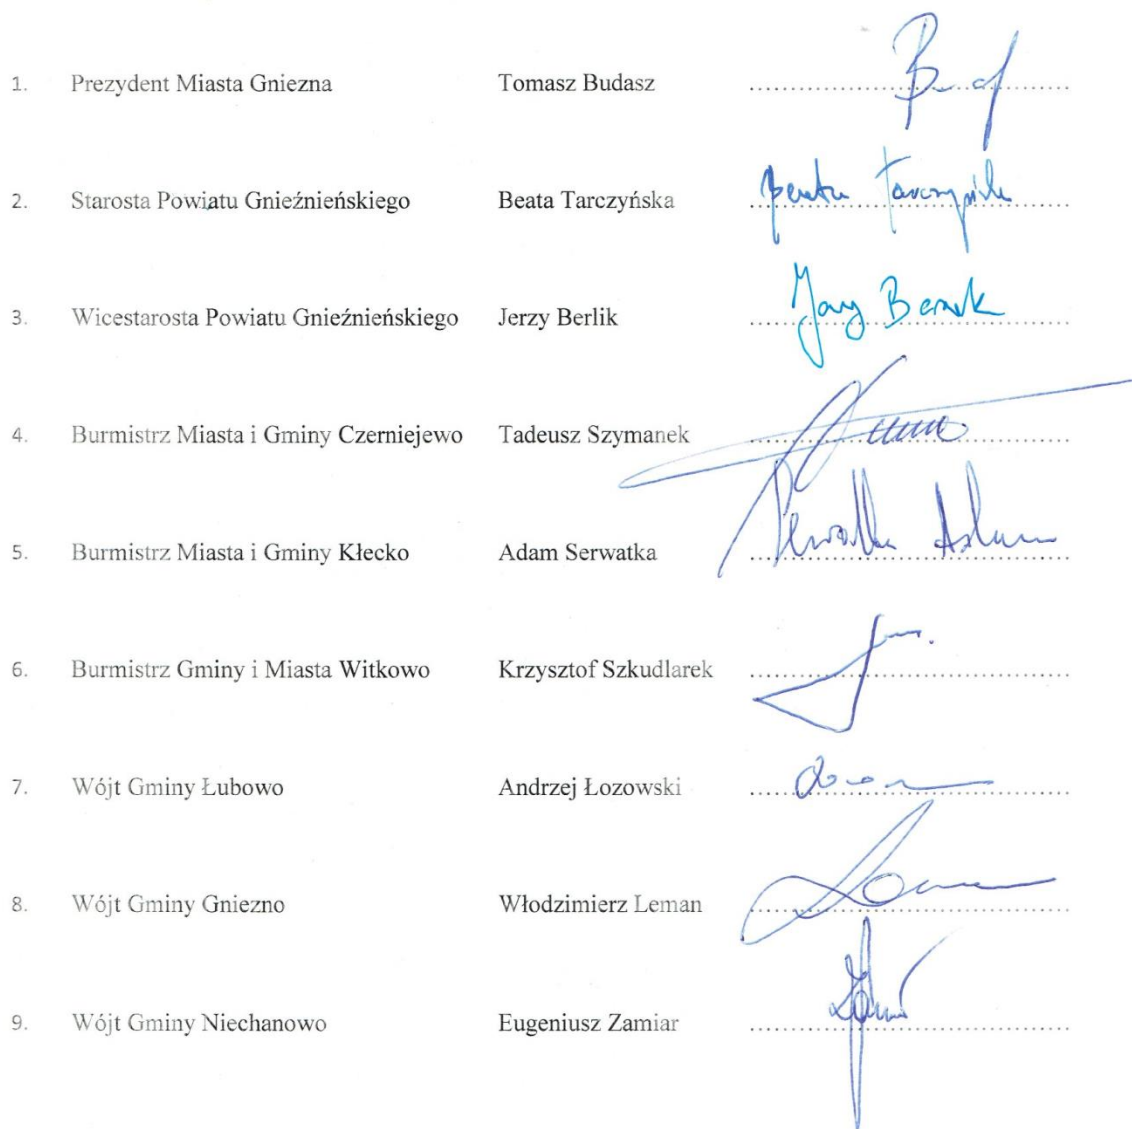 1. Prezydent Miasta Gniezna Tomasz Budasz
2. Starosta Powiatu Gnieźnieńskiego Beata Tarczyńska
3. Wicestarosta Powiatu Gnieźnieńskiego Jerzy Berlik
4. Burmistrz Miasta i Gminy Czerniejewo Tadeusz Szymanek
5. Burmistrz Miasta i Gminy Kłecko Adam Serwatka
6. Burmistrz Gminy i Miasta Witkowo Krzysztof Szkudlarek
7. Wójt Gminy Łubowo Andrzej Łozowski
8. Wójt Gminy Gniezno Włodzimierz Leman
9. Wójt Gminy Niechanowo Eugeniusz Zamiar